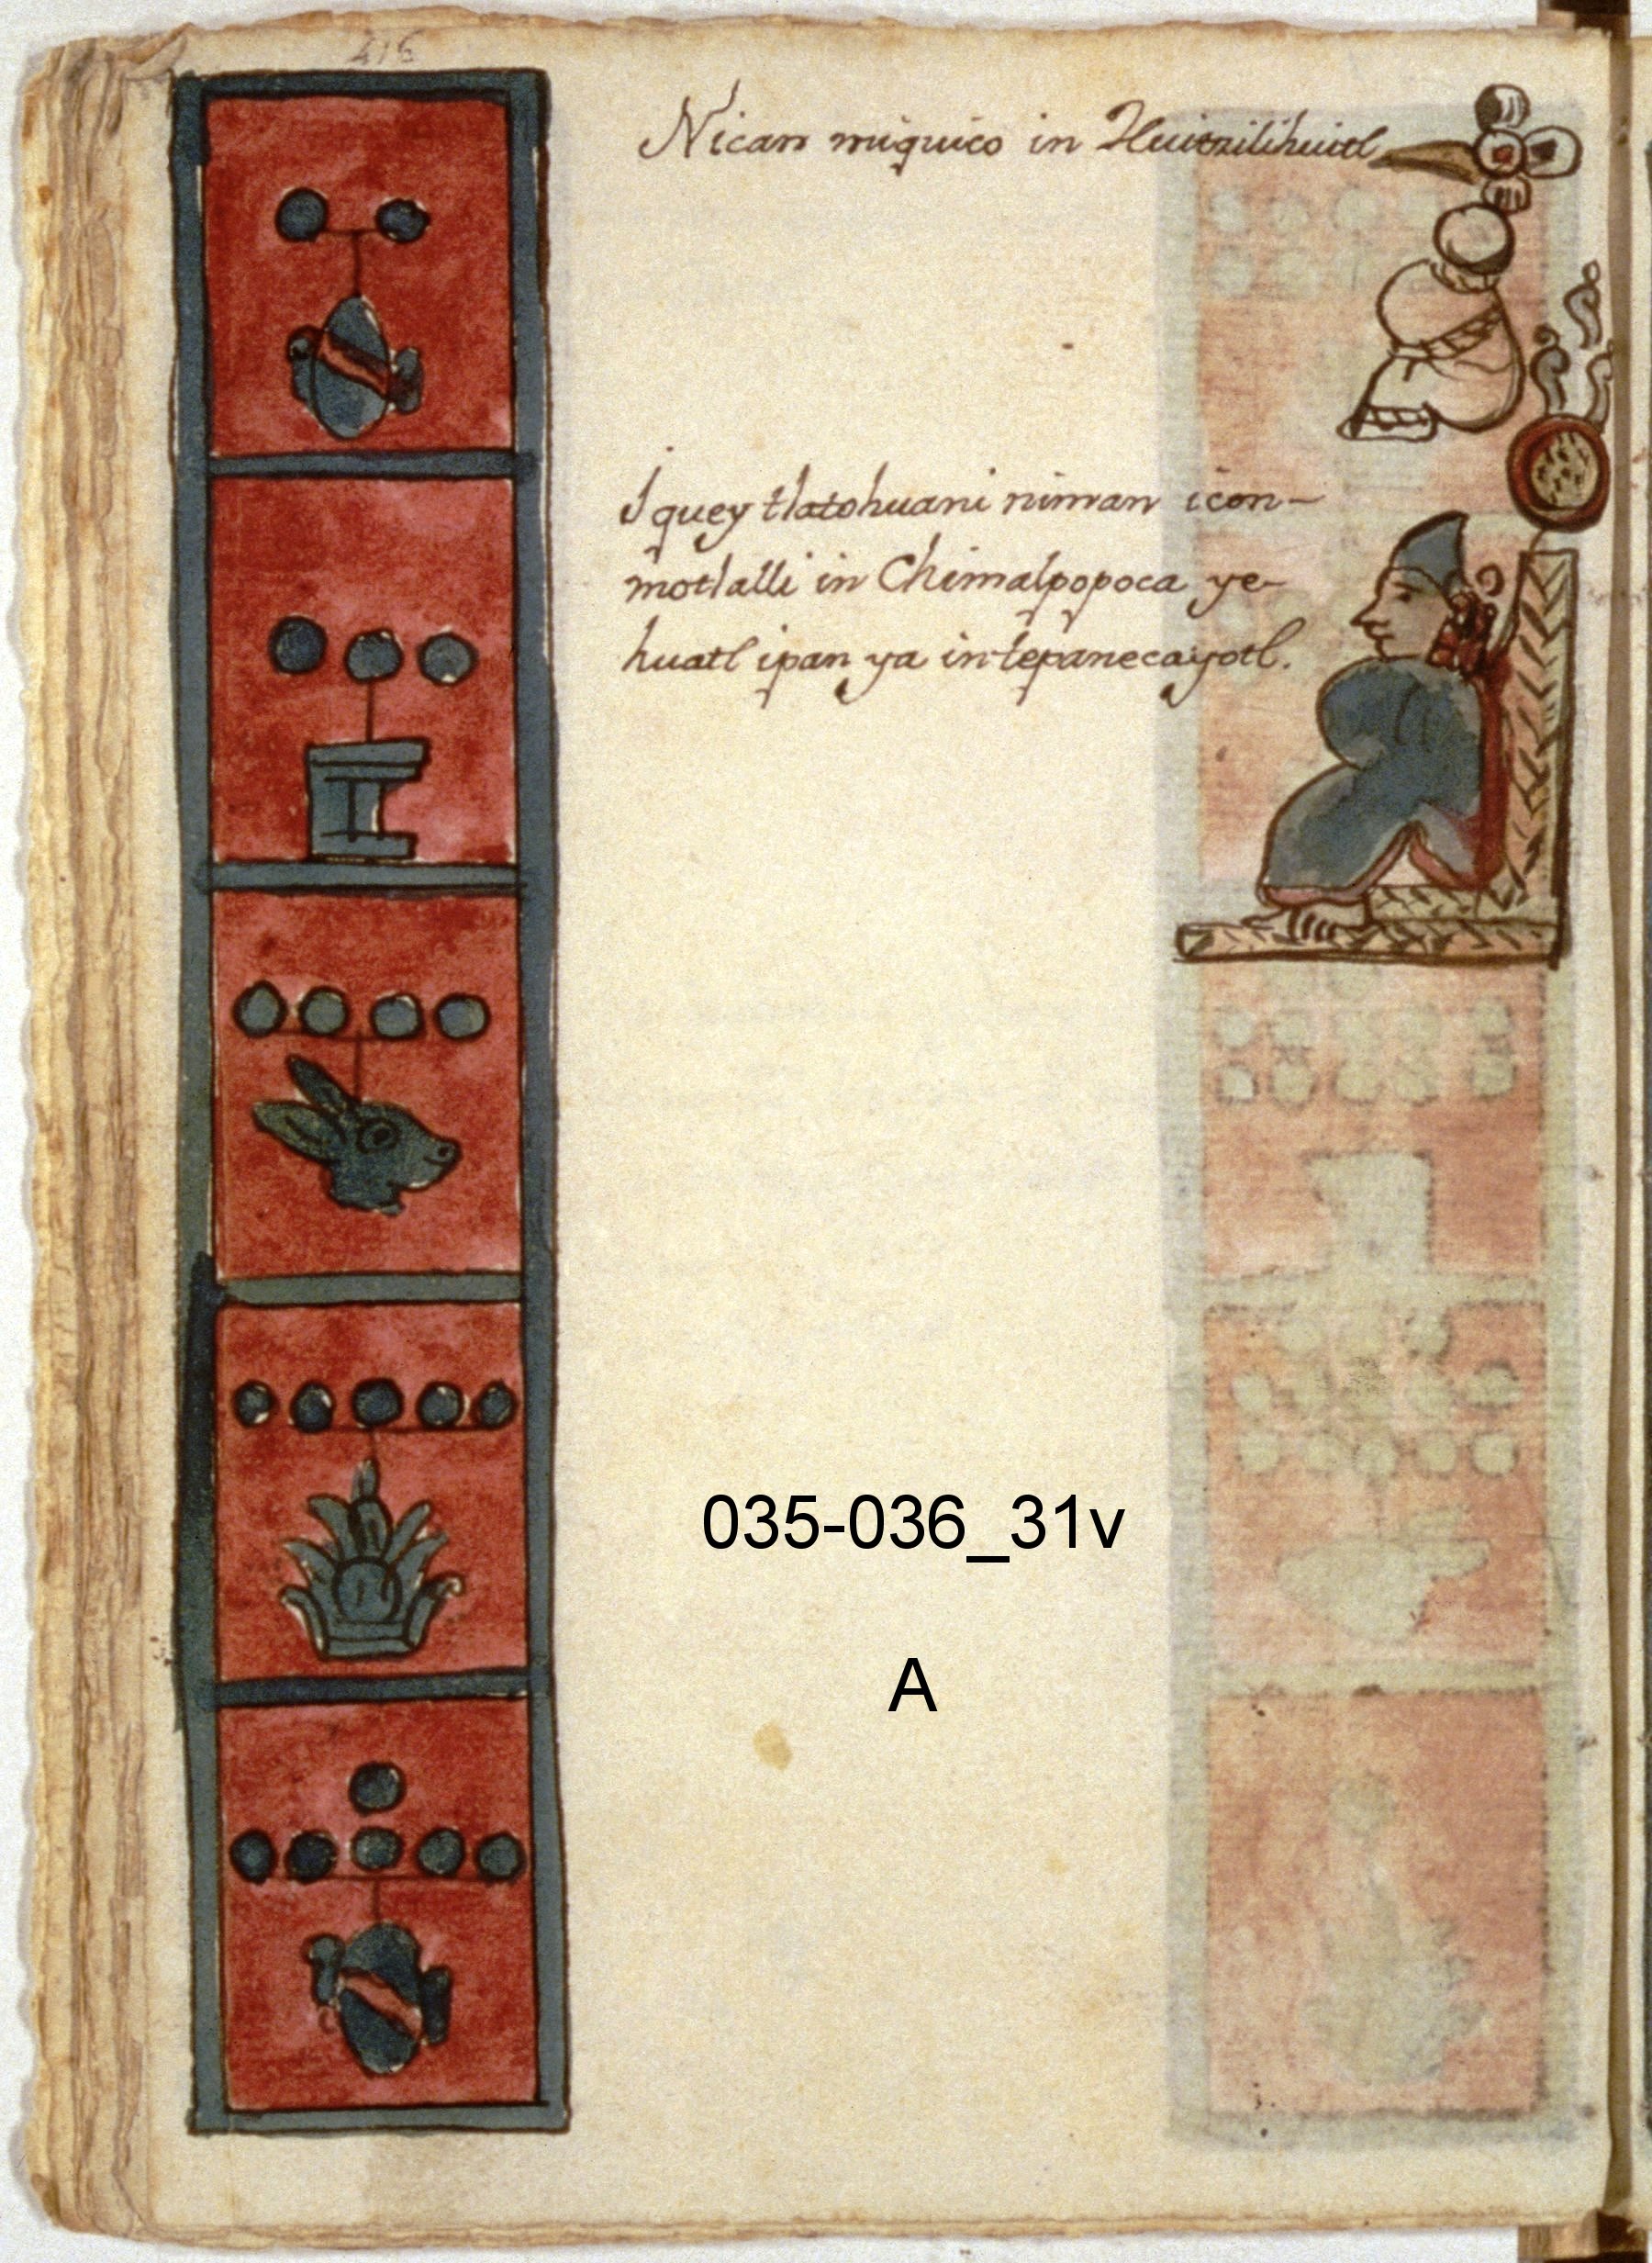 216
Nican miquico in Huitzilihuitl
I quey tlatohuani niman icon-
motlalli in Chimalpopoca ye-
huatl ipan ya in tepanecayotl.
035-036_31v
A